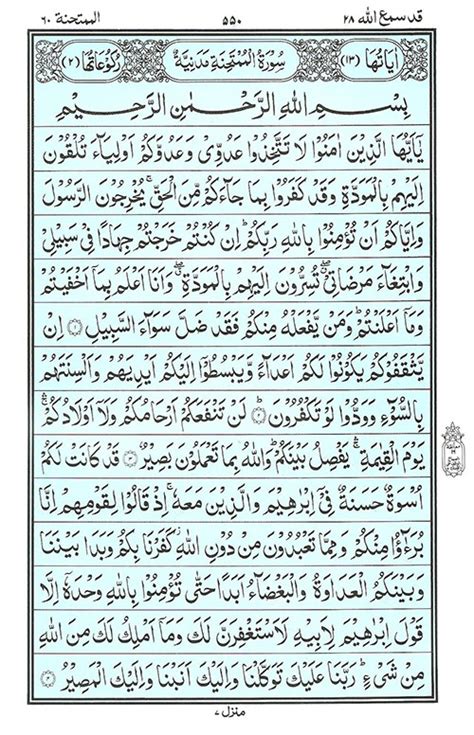 قد سمع الله ٢٨ ٥٥٠ الممتحنة ٦٠
اٰيَاتُهَا (١٣) سُوْرَةُ الْمُمْتَحِنَةِ مَدَنِيَّةٌ رُكُوْعَاتُهَا (٢)
بِسْمِ اللّٰهِ الرَّحْمٰنِ الرَّحِيْمِ
يٰۤاَيُّهَا الَّذِيْنَ اٰمَنُوْا لَا تَتَّخِذُوْا عَدُوِّىْ وَعَدُوَّكُمْ اَوْلِيَآءَ تُلْقُوْنَ
اِلَيْهِمْ بِالْمَوَدَّةِ وَقَدْ كَفَرُوْا بِمَا جَآءَكُمْ مِّنَ الْحَقِّ ۚ يُخْرِجُوْنَ الرَّسُوْلَ
وَاِيَّاكُمْ اَنْ تُؤْمِنُوْا بِاللّٰهِ رَبِّكُمْ ؕ اِنْ كُنْتُمْ خَرَجْتُمْ جِهَادًا فِىْ سَبِيْلِىْ
وَابْتِغَآءَ مَرْضَاتِىْ ۖ تُسِرُّوْنَ اِلَيْهِمْ بِالْمَوَدَّةِ ۖ وَاَنَا اَعْلَمُ بِمَاۤ اَخْفَيْتُمْ
وَمَاۤ اَعْلَنْتُمْ ؕ وَمَنْ يَّفْعَلْهُ مِنْكُمْ فَقَدْ ضَلَّ سَوَآءَ السَّبِيْلِ ۝١ اِنْ
يَّثْقَفُوْكُمْ يَكُوْنُوْا لَكُمْ اَعْدَآءً وَّيَبْسُطُوْۤا اِلَيْكُمْ اَيْدِيَهُمْ وَاَلْسِنَتَهُمْ
بِالسُّوْٓءِ وَوَدُّوْا لَوْ تَكْفُرُوْنَ ۝٢ لَنْ تَنْفَعَكُمْ اَرْحَامُكُمْ وَلَاۤ اَوْلَادُكُمْ ۚ
يَوْمَ الْقِيٰمَةِ ۚ يَفْصِلُ بَيْنَكُمْ ؕ وَاللّٰهُ بِمَا تَعْمَلُوْنَ بَصِيْرٌ ۝٣ قَدْ كَانَتْ لَكُمْ
اُسْوَةٌ حَسَنَةٌ فِىْۤ اِبْرٰهِيْمَ وَالَّذِيْنَ مَعَهٗ ۚ اِذْ قَالُوْا لِقَوْمِهِمْ اِنَّا
بُرَءٰٓؤُا مِنْكُمْ وَمِمَّا تَعْبُدُوْنَ مِنْ دُوْنِ اللّٰهِ ؗ كَفَرْنَا بِكُمْ وَبَدَا بَيْنَنَا
وَبَيْنَكُمُ الْعَدَاوَةُ وَالْبَغْضَآءُ اَبَدًا حَتّٰى تُؤْمِنُوْا بِاللّٰهِ وَحْدَهٗۤ اِلَّا
قَوْلَ اِبْرٰهِيْمَ لِاَبِيْهِ لَاَسْتَغْفِرَنَّ لَكَ وَمَاۤ اَمْلِكُ لَكَ مِنَ اللّٰهِ
مِنْ شَىْءٍ ؕ رَبَّنَا عَلَيْكَ تَوَكَّلْنَا وَاِلَيْكَ اَنَبْنَا وَاِلَيْكَ الْمَصِيْرُ ۝٤
منزل ٧